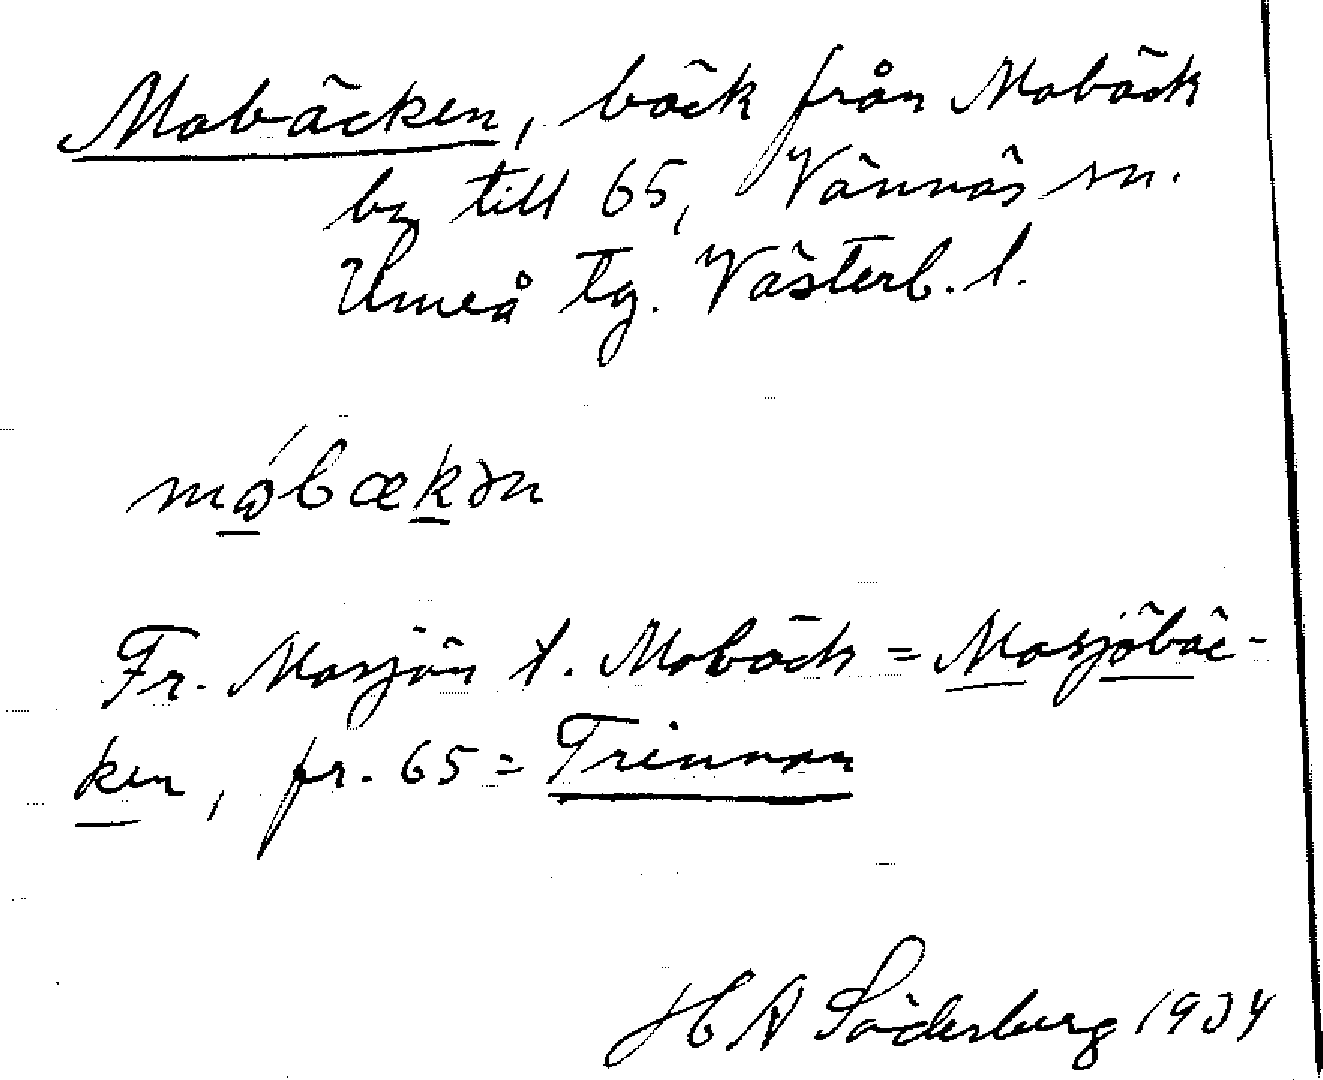 Mobäcken, bäck från Mobäck
by till 65, Vännäs sn.
Umeå tg. Västerb. l.
mǻbækən
Fr. Mosjön t. Mobäck = Mosjöbäc-
ken, fr. 65 = Trinnan
H A Söderberg 1934